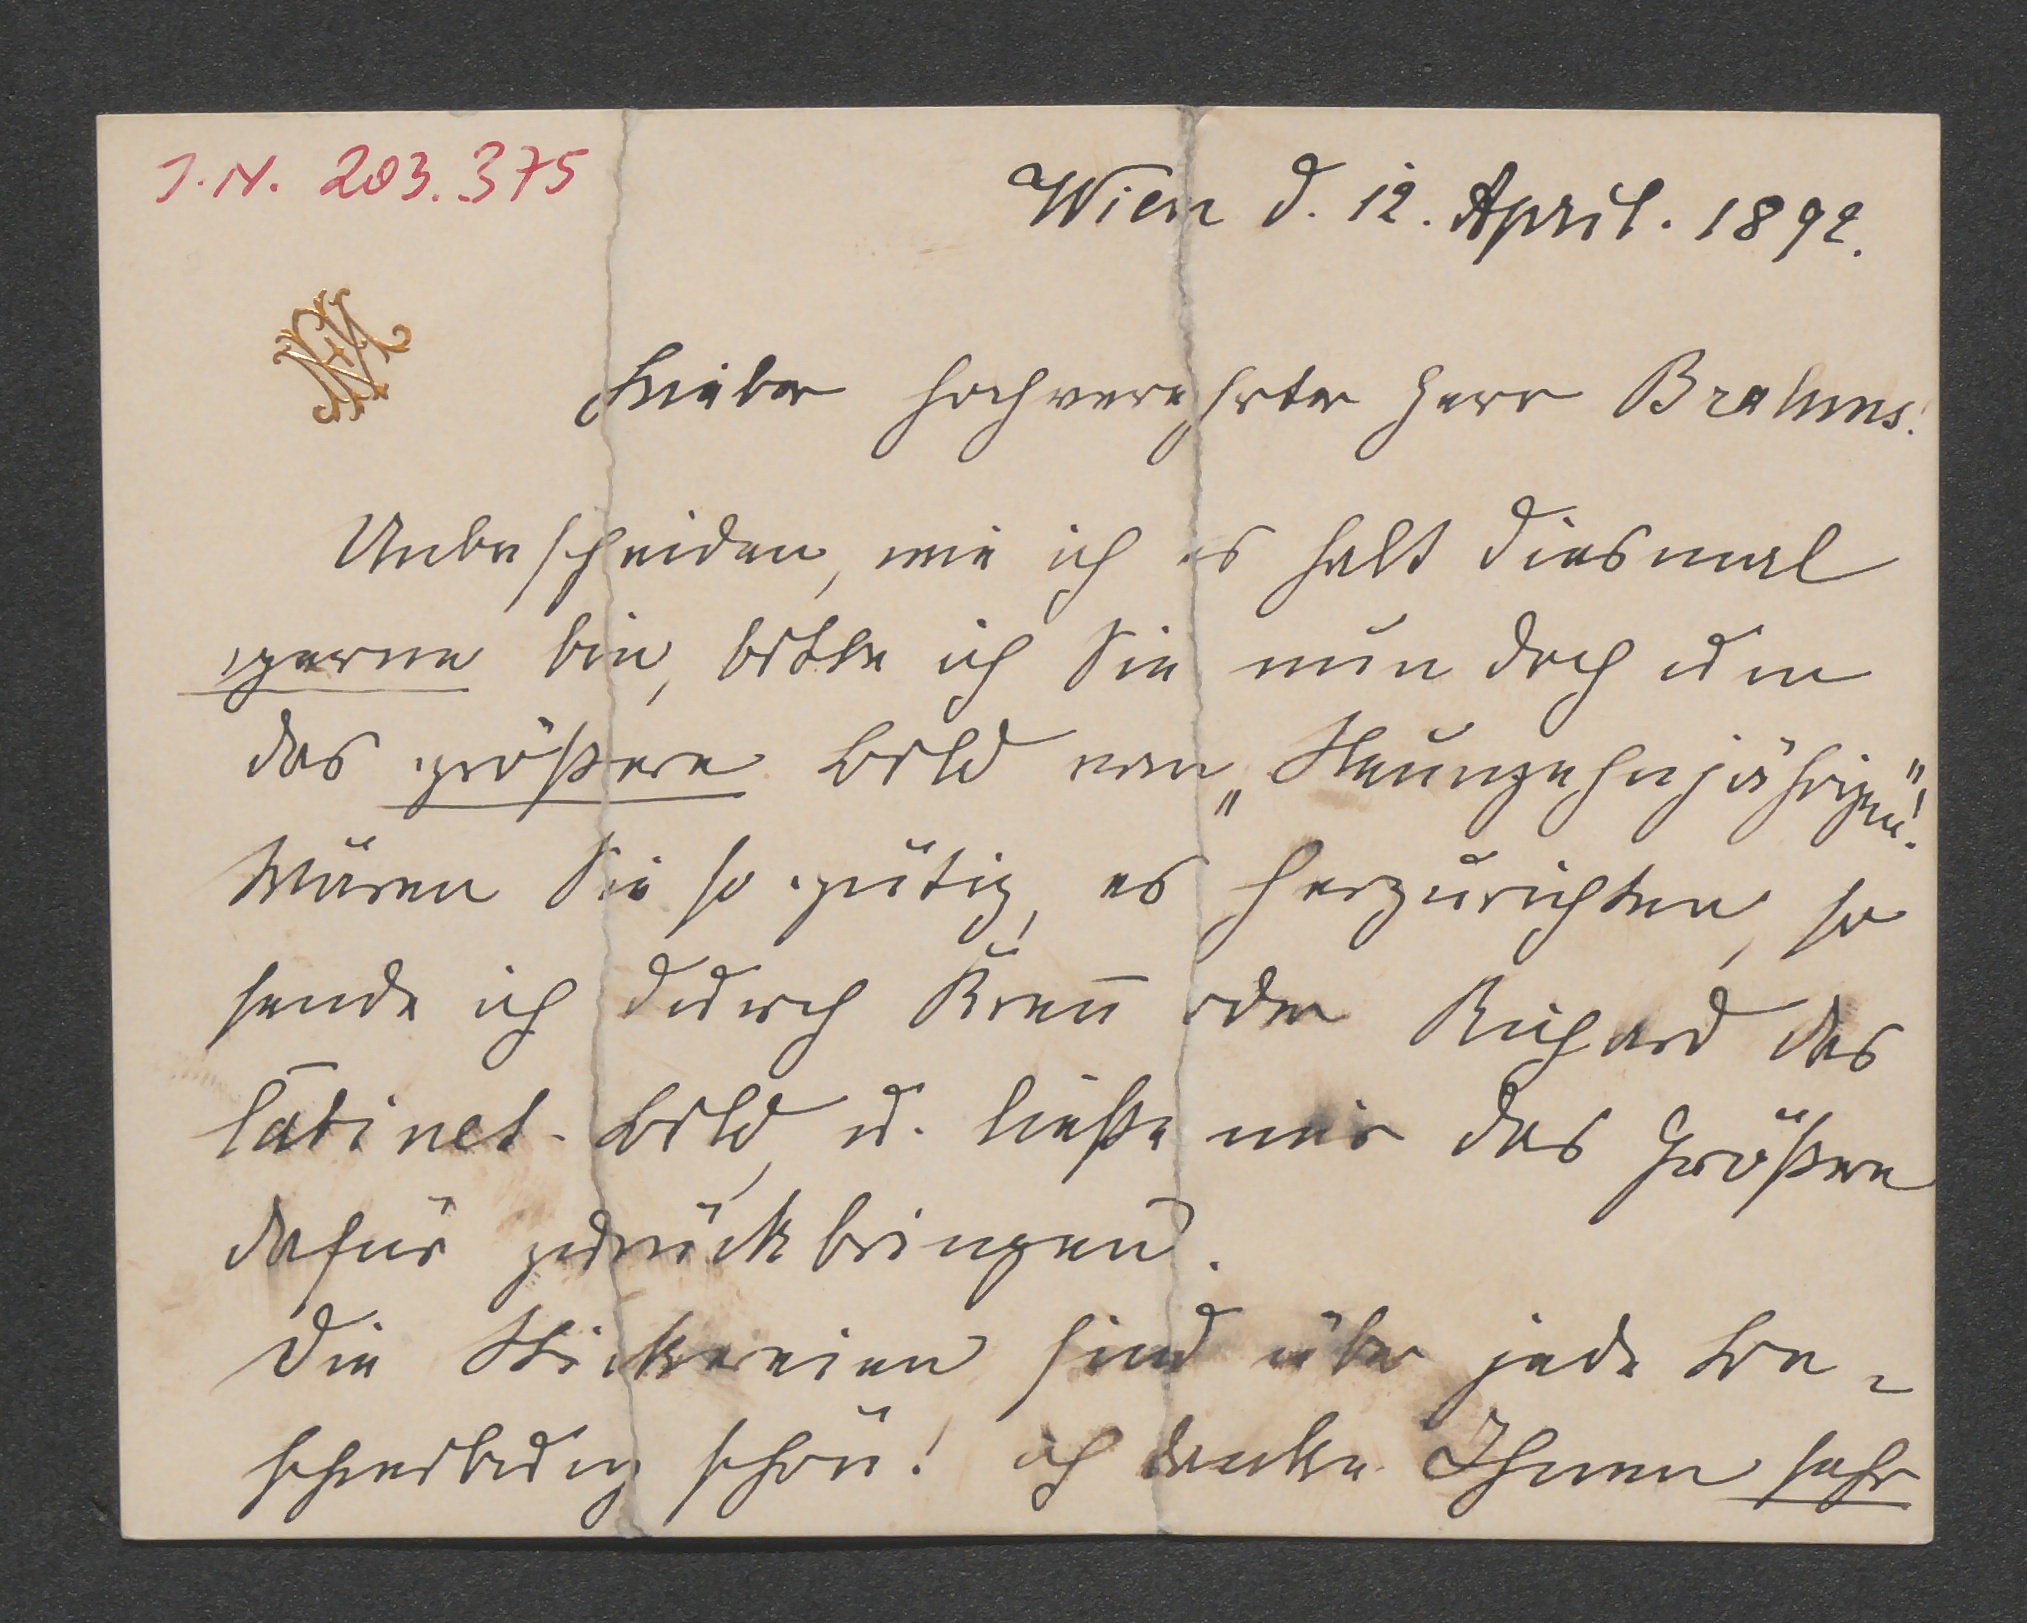 I.N. 203.375
Wien d. 12. April. 1892.
Lieber hochverehrter Herr Brahms!
Unbescheiden, wie ich es halt diesmal
gerne bin, bitte ich Sie nun doch um
das größere Bild vom „Neunzehnjährigen"!
Wären Sie so gütig, es herzurichten, so
sende ich durch Kreñ oder Richard das
Cabinet-Bild, u. ließe mir das Größere
dafür zurückbringen.
Die Stickereien sind über jede Be-
schreibung schön! ich danke Ihnen sehr